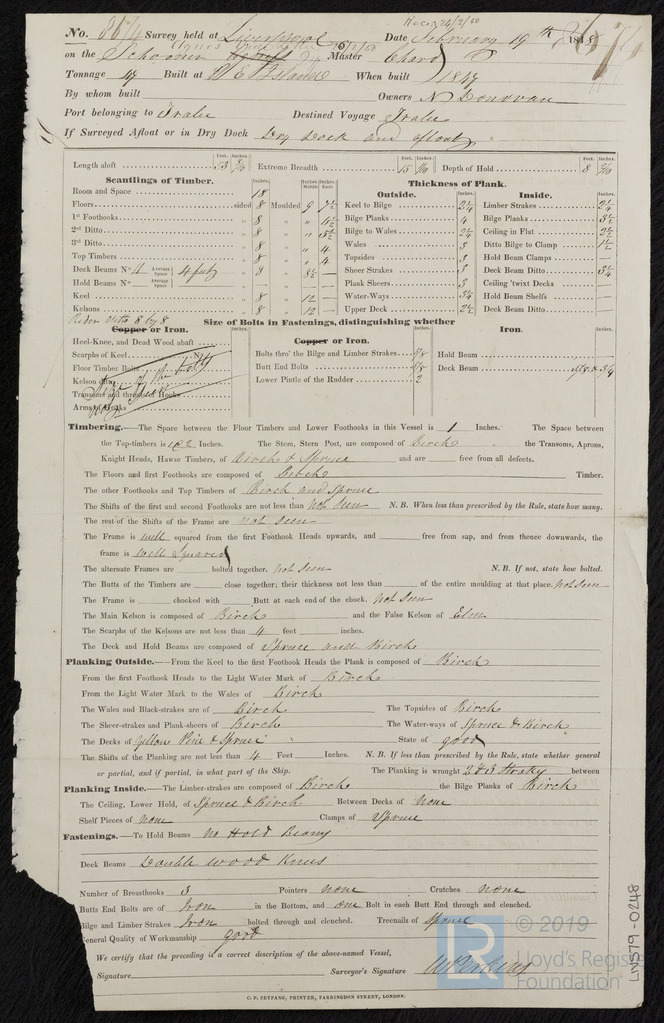 Recd 24/2/60
No. 8674 Survey held at Liverpool Date February 19th 1848
on the Schooner Master Chard
Tonnage 47 Built at P E Island When built 1847
By whom built Owners N Donovan
Port belonging to Tralee Destined Voyage Tralee
If Surveyed Afloat or in Dry Dock Dry Dock and afloat
Feet. Inches. Feet. Inches. Feet. Inches.
Length aloft 53 Extreme Breadth 15 Depth of Hold 8
Scantlings of Timber. Thickness of Plank.
Inches. Inches Middle Inches Ends Outside. Inches. Inside. Inches.
Room and Space 18 Keel to Bilge 2¼ Limber Strakes 2¼
Floors sided 8 Moulded 9 7½ Bilge Planks 4 Bilge Planks 3½
1st Foothooks " 8 " " Bilge to Wales 2¼ Ceiling in Flat 2½
2nd Ditto " 8 " " 5½ Wales 3 Ditto Bilge to Clamp 1½
3rd Ditto " 8 " " 4 Topsides 3 Hold Beam Clamps
Top Timbers " 8 " " 4 Sheer Strakes 3 Deck Beam Ditto 3¼
Deck Beams No. 11 Average Space 4 feet " 8 " 8½ Plank Sheers 3 Ceiling 'twixt Decks
Hold Beams No. Average Space Water-Ways 3¼ Hold Beam Shelfs
Keel " 8 " 12 Upper Deck 2½ Deck Beam Ditto
Kelsons " 8 " 12
Rider ditto 8 by 8 Size of Bolts in Fastenings, distinguishing whether
Copper or Iron. Copper or Iron. Iron.
Heel-Knee, and Dead Wood abaft
Scarphs of Keel No. Bolts thro' the Bilge and Limber Strakes 5/8 Hold Beam
Floor Timber Bolts Butt End Bolts 5/8 Deck Beam 5/8 & 3/4
Kelson ditto Lower Pintle of the Rudder 2
Transoms and throats of Hooks
Arms of Hooks
Timbering.—The Space between the Floor Timbers and Lower Foothooks in this Vessel is 1 Inches. The Space between
the Top-timbers is 1 & 2 Inches. The Stem, Stern Post, are composed of Birch the Transoms, Aprons,
Knight Heads, Hawse Timbers, of Birch & Spruce and are free from all defects.
The Floors and first Foothooks are composed of Birch Timber.
The other Foothooks and Top Timbers of Birch and Spruce
The Shifts of the first and second Foothooks are not less than not seen N. B. When less than prescribed by the Rule, state how many.
The rest of the Shifts of the Frame are not seen
The Frame is well squared from the first Foothook Heads upwards, and free from sap, and from thence downwards, the
frame is well squared
The alternate Frames are bolted together. not seen N. B. If not, state how bolted.
The Butts of the Timbers are close together; their thickness not less than of the entire moulding at that place. not seen
The Frame is chocked with Butt at each end of the chock. not seen
The Main Kelson is composed of Birch and the False Kelson of Elm
The Scarphs of the Kelsons are not less than 4 feet inches.
The Deck and Hold Beams are composed of Spruce and Birch
Planking Outside.—From the Keel to the first Foothook Heads the Plank is composed of Birch
From the first Foothook Heads to the Light Water Mark of Birch
From the Light Water Mark to the Wales of Birch
The Wales and Black-strakes are of Birch The Topsides of Birch
The Sheer-strakes and Plank-sheers of Birch The Water-ways of Spruce & Birch
The Decks of Yellow Pine & Spruce State of good
The Shifts of the Planking are not less than 4 Feet Inches. N. B. If less than prescribed by the Rule, state whether general
or partial, and if partial, in what part of the Ship. The Planking is wrought 2 & 3 Strakes between
Planking Inside.—The Limber-strakes are composed of Birch the Bilge Planks of Birch
The Ceiling, Lower Hold, of Spruce & Birch Between Decks of None
Shelf Pieces of none Clamps of Spruce
Fastenings.—To Hold Beams No Hold Beams
Deck Beams Double wood Knees
Number of Breasthooks 3 Pointers none Crutches none
Butts End Bolts are of Iron in the Bottom, and one Bolt in each Butt End through and clenched.
Bilge and Limber Strakes Iron bolted through and clenched. Treenails of Spruce
General Quality of Workmanship good
We certify that the preceding is a correct description of the above-named Vessel,
Signature Surveyor's Signature
C. F. SEYFANG, PRINTER, FARRINGDON STREET, LONDON.
LNS79-0248
LR © 2019
Lloyd's Register
Foundation